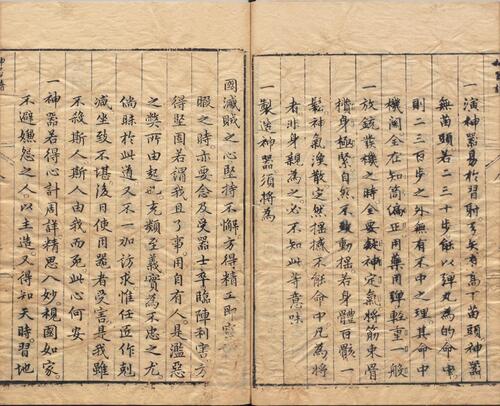 一演神器易於習射弓矢有高下苗頭神器
無苗頭若二三十步能以彈丸為的命中
則二三百步之外無有不中之理其命中
機關全在知筒偏正用藥用彈輕重一般
一放銃發機之時全要歛神定氣將筋束骨
揹身極緊自然不致動搖若身體百骸一
鬆神氣渙散定然搖撼不能命中凡為將
者非身親為之必不知此等意味
一製造神器須將為
國滅賊之心堅持不懈方得精工即寧
暇之時亦要念及受器士卒臨陣利害方
得堅固若謂我且了事用自有人是濫惡
之獘所由起也充類至義實為不忠之尤
倘昧於此道又不一加訪求惟任匠作剋
減坐致不堪後日使用器者受害是我雖
不殺斯人斯人由我而死此心何安
一神器若得心計周詳精思入妙視國如家
不避嫌怨之人以主造又得知天時習地